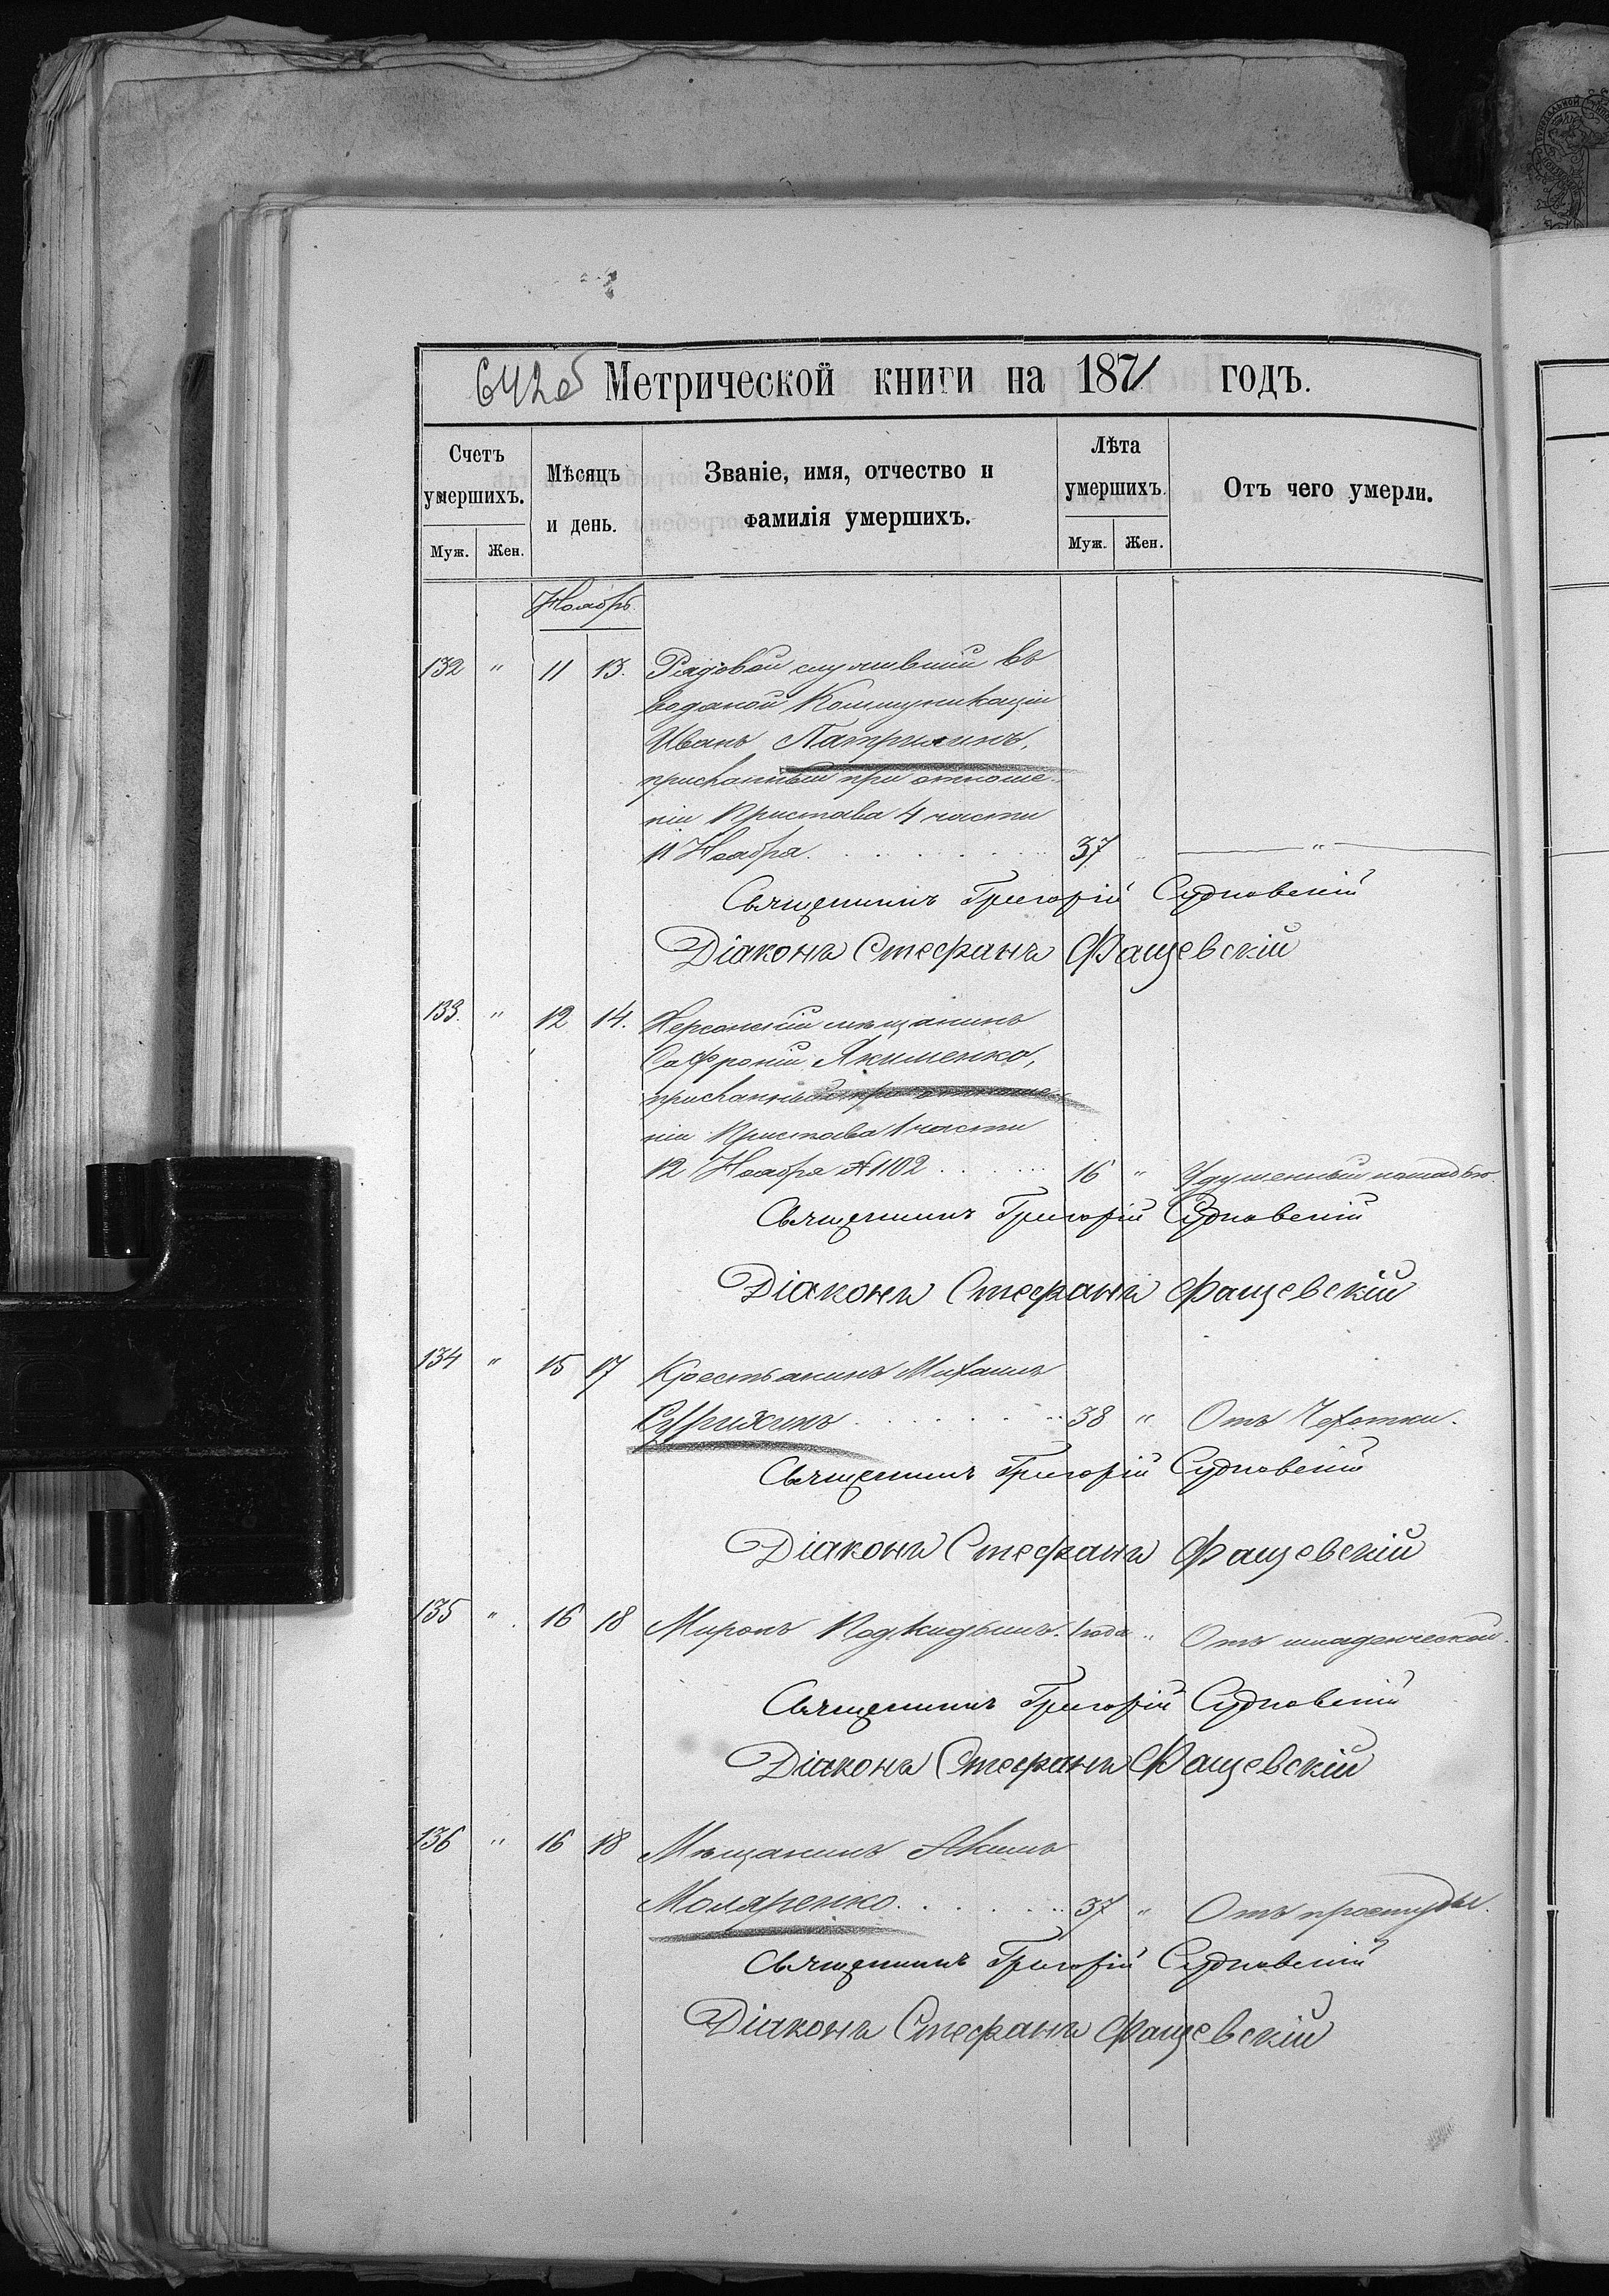 642об Метрической книги на 1871 годъ.
Счетъ умершихъ. Мѣсяцъ и день. Званіе, имя, отчество и фамилія умершихъ. Лѣта умершихъ. Отъ чего умерли.
Муж. Жен. Муж. Жен.
Ноябрь
132 " 11 13. Рядовой служившій въ
водяной Коммуникаціи
Иванъ
присланный при отноше-
ніи Пристава 4 части
11 Ноября 37 " "
Священникъ Григорій Судковскій
Діаконъ Стефанъ Фащевскій
133. " 12 14. Херсонскій мѣщанинъ
Софроній Якименко,
присланный при отноше-
ніи Пристава 1 части
12 Ноября № 1102 16 " Удушенный лошадью.
Священникъ Григорій Судковскій
Діаконъ Стефанъ Фащевскій
134 " 15 17 Крестьянинъ Михаилъ
38 " Отъ Чахотки.
Священникъ Григорій Судковскій
Діаконъ Стефанъ Фащевскій
135 " 16 18 Миронъ Подкидышъ. 1 года " Отъ младенческой.
Священникъ Григорій Судковскій
Діаконъ Стефанъ Фащевскій
136 " 16 18 Мѣщанинъ Акимъ
Моляренко 37 " Отъ простуды.
Священникъ Григорій Судковскій
Діаконъ Стефанъ Фащевскій